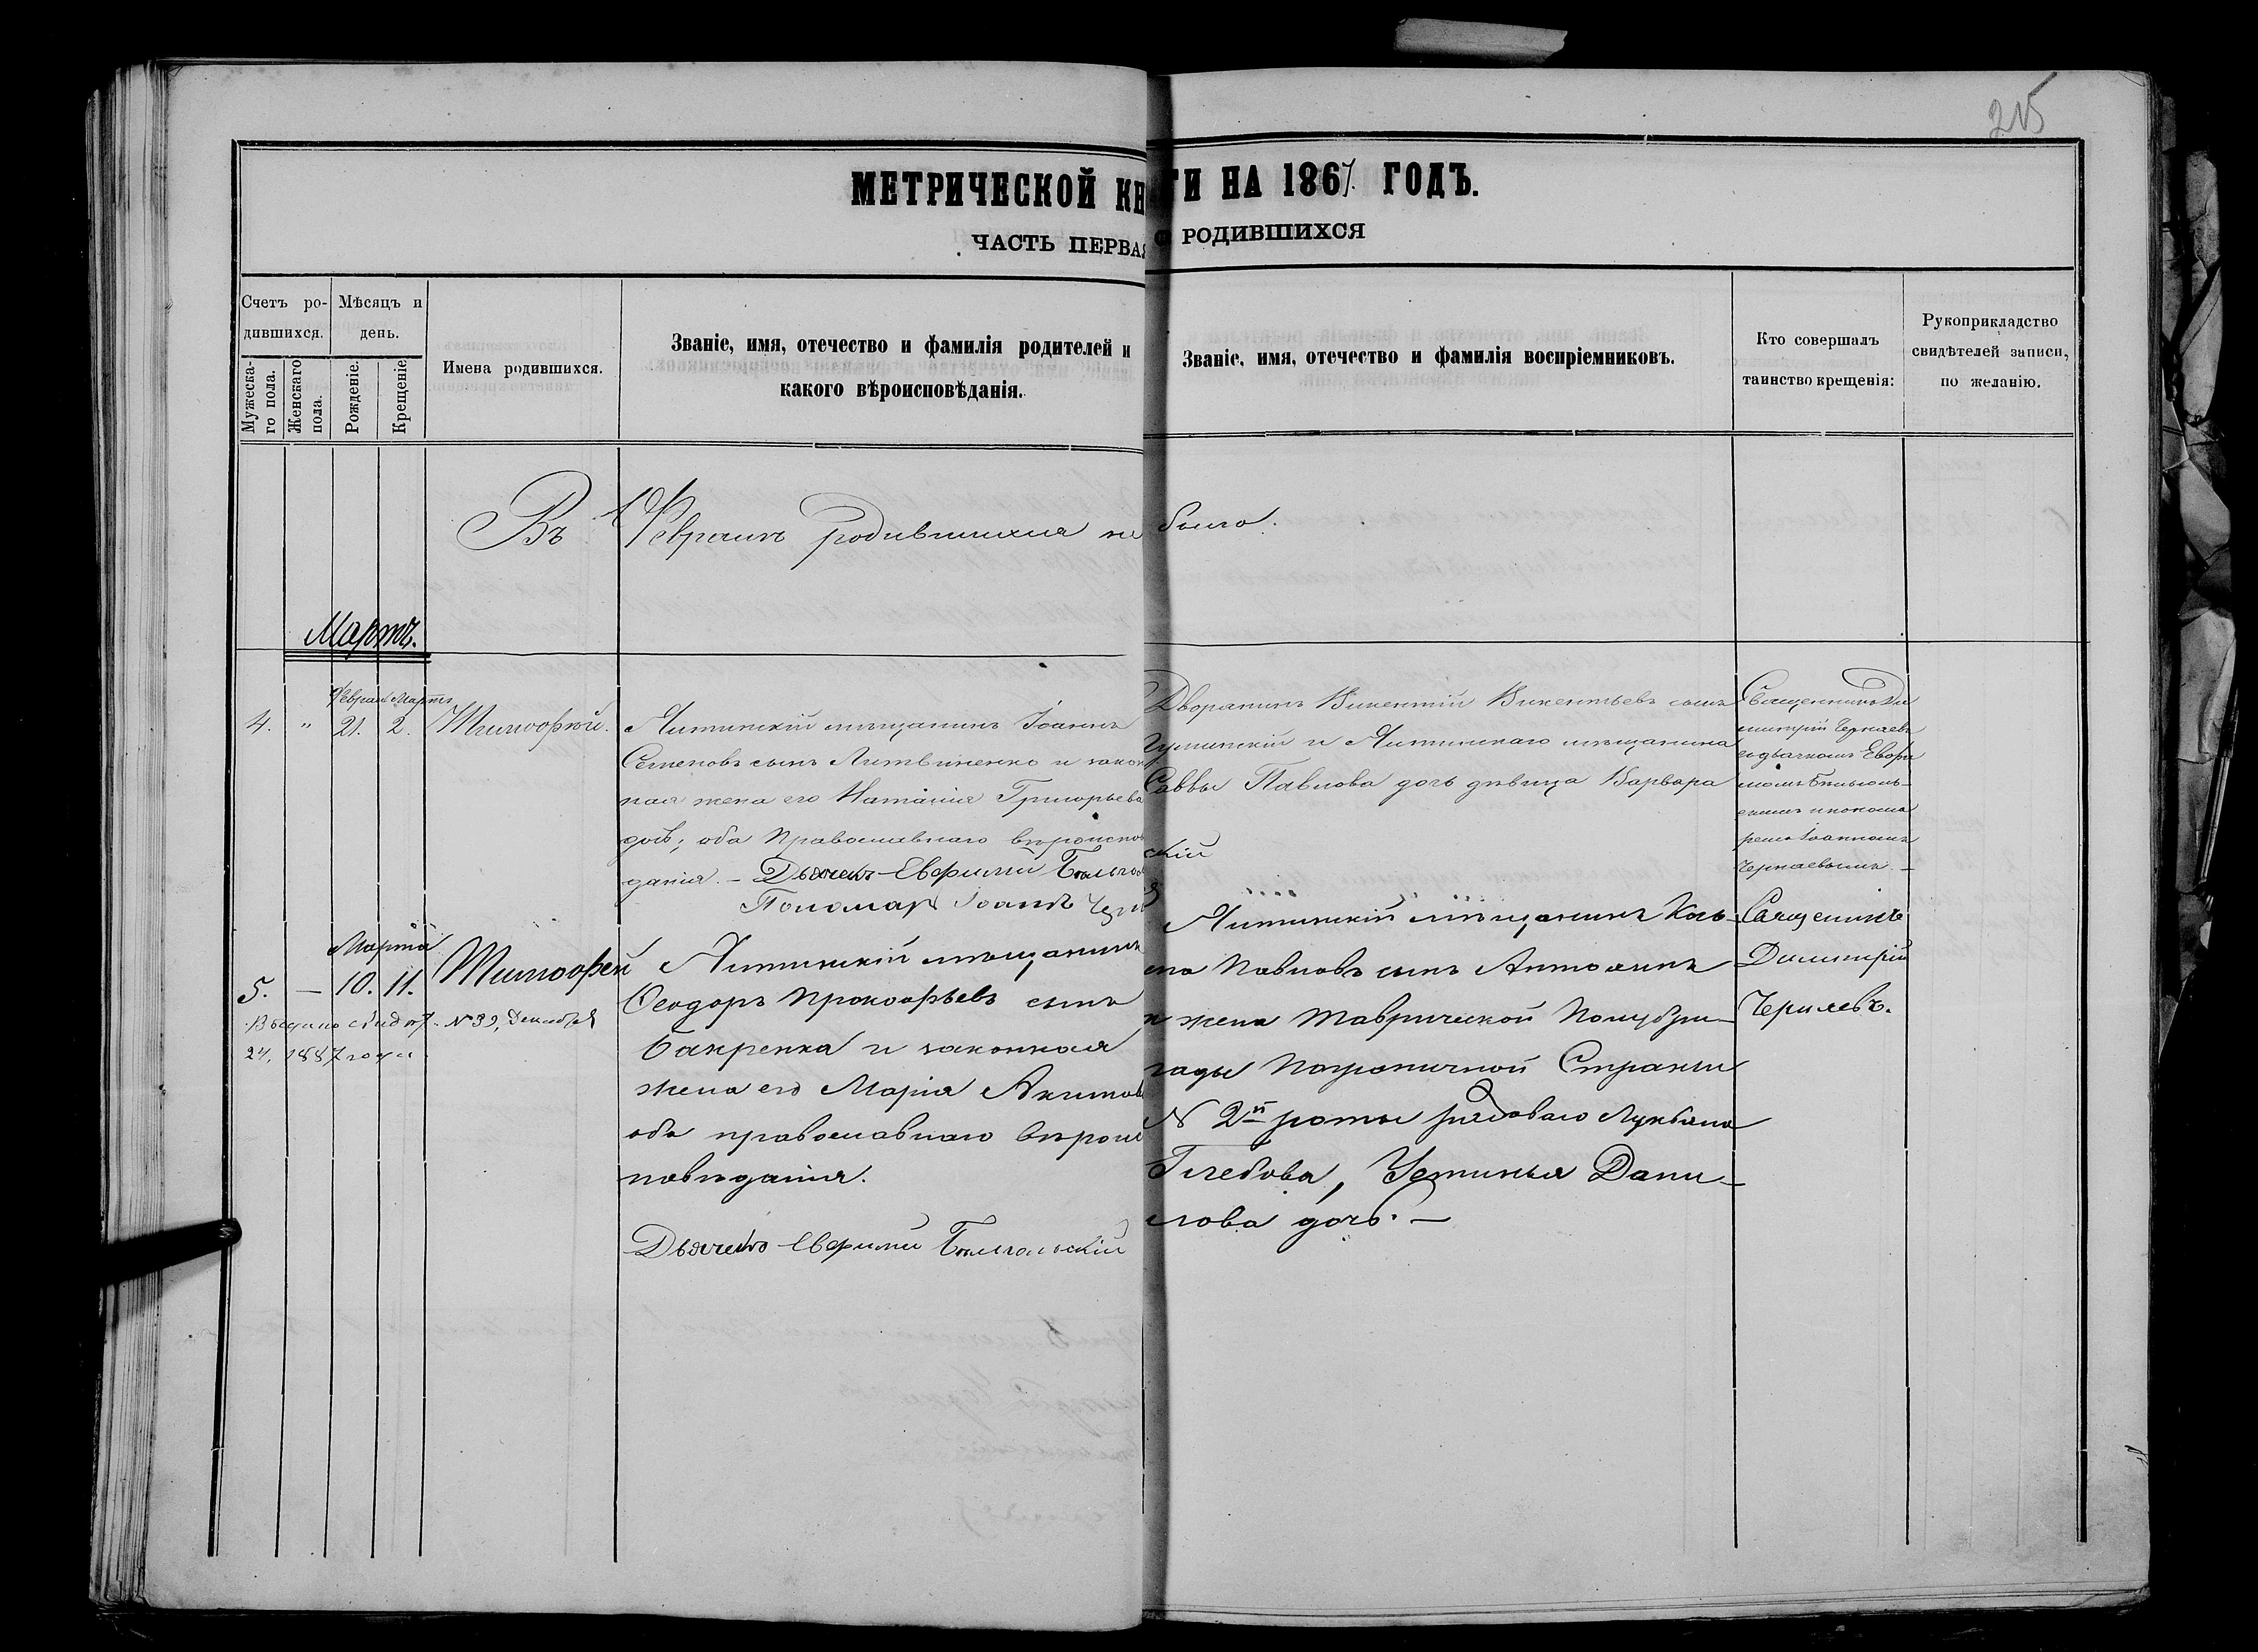 215
МЕТРИЧЕСКОЙ КНИГИ НА 1867 ГОДЪ.
ЧАСТЬ ПЕРВАЯ О РОДИВШИХСЯ
Счетъ ро-
дившихся.
Мужеска-
го пола.
Женскаго
пола.
Мѣсяцъ и
день.
Рожденіе.
Крещеніе
Имена родившихся.
Званіе, имя, отечество и фамилія родителей и
какого вѣроисповѣданія.
Званіе, имя, отечество и фамилія воспріемниковъ.
Кто совершалъ
таинство крещенія:
Рукоприкладство
свидѣтелей записи,
по желанію.
Въ Февралѣ родившихся не было.
Мартъ.
Февраля Марта
4. " 21. 2. Тимофѣй.
мѣщанинъ Іоаннъ
Семеновъ сынъ Литвиненко и закон
ная жена его Наталія Григорьева
дочь; оба Православнаго вѣроиспов
данія. – Дьячекъ Евфимій
Пономарь Іоаннъ
Дворянинъ Викентій Викентьевъ сынъ
и мѣщанина
Саввы Павлова дочь дѣвица Варвара
скій
Священникъ Ди
митрій Черняевъ
съ дьячкомъ Евфи
момъ
скимъ и понома
ремъ Іоанномъ
Черняевымъ. –
Марта
5. — 10. 11. Тимофей
Выдано свидѣт. № 39, Декабря
24, 1887 года
мѣщанинъ
Ѳеодоръ Прокофьевъ сынъ
Бакренка и законная
жена его Марія Акимова
оба православнаго вѣроис
повѣданія.
Дьячекъ Евфимій
мѣщанинъ Козь-
ма Павловъ сынъ Антоанна
и жена Таврической Полубри-
гады Пограничной Стражи
№ 2й роты рядоваго Лукьяна
Глебова, Устинья Дани-
лова дочь. —
Священникъ
Димитрій
Черняевъ.